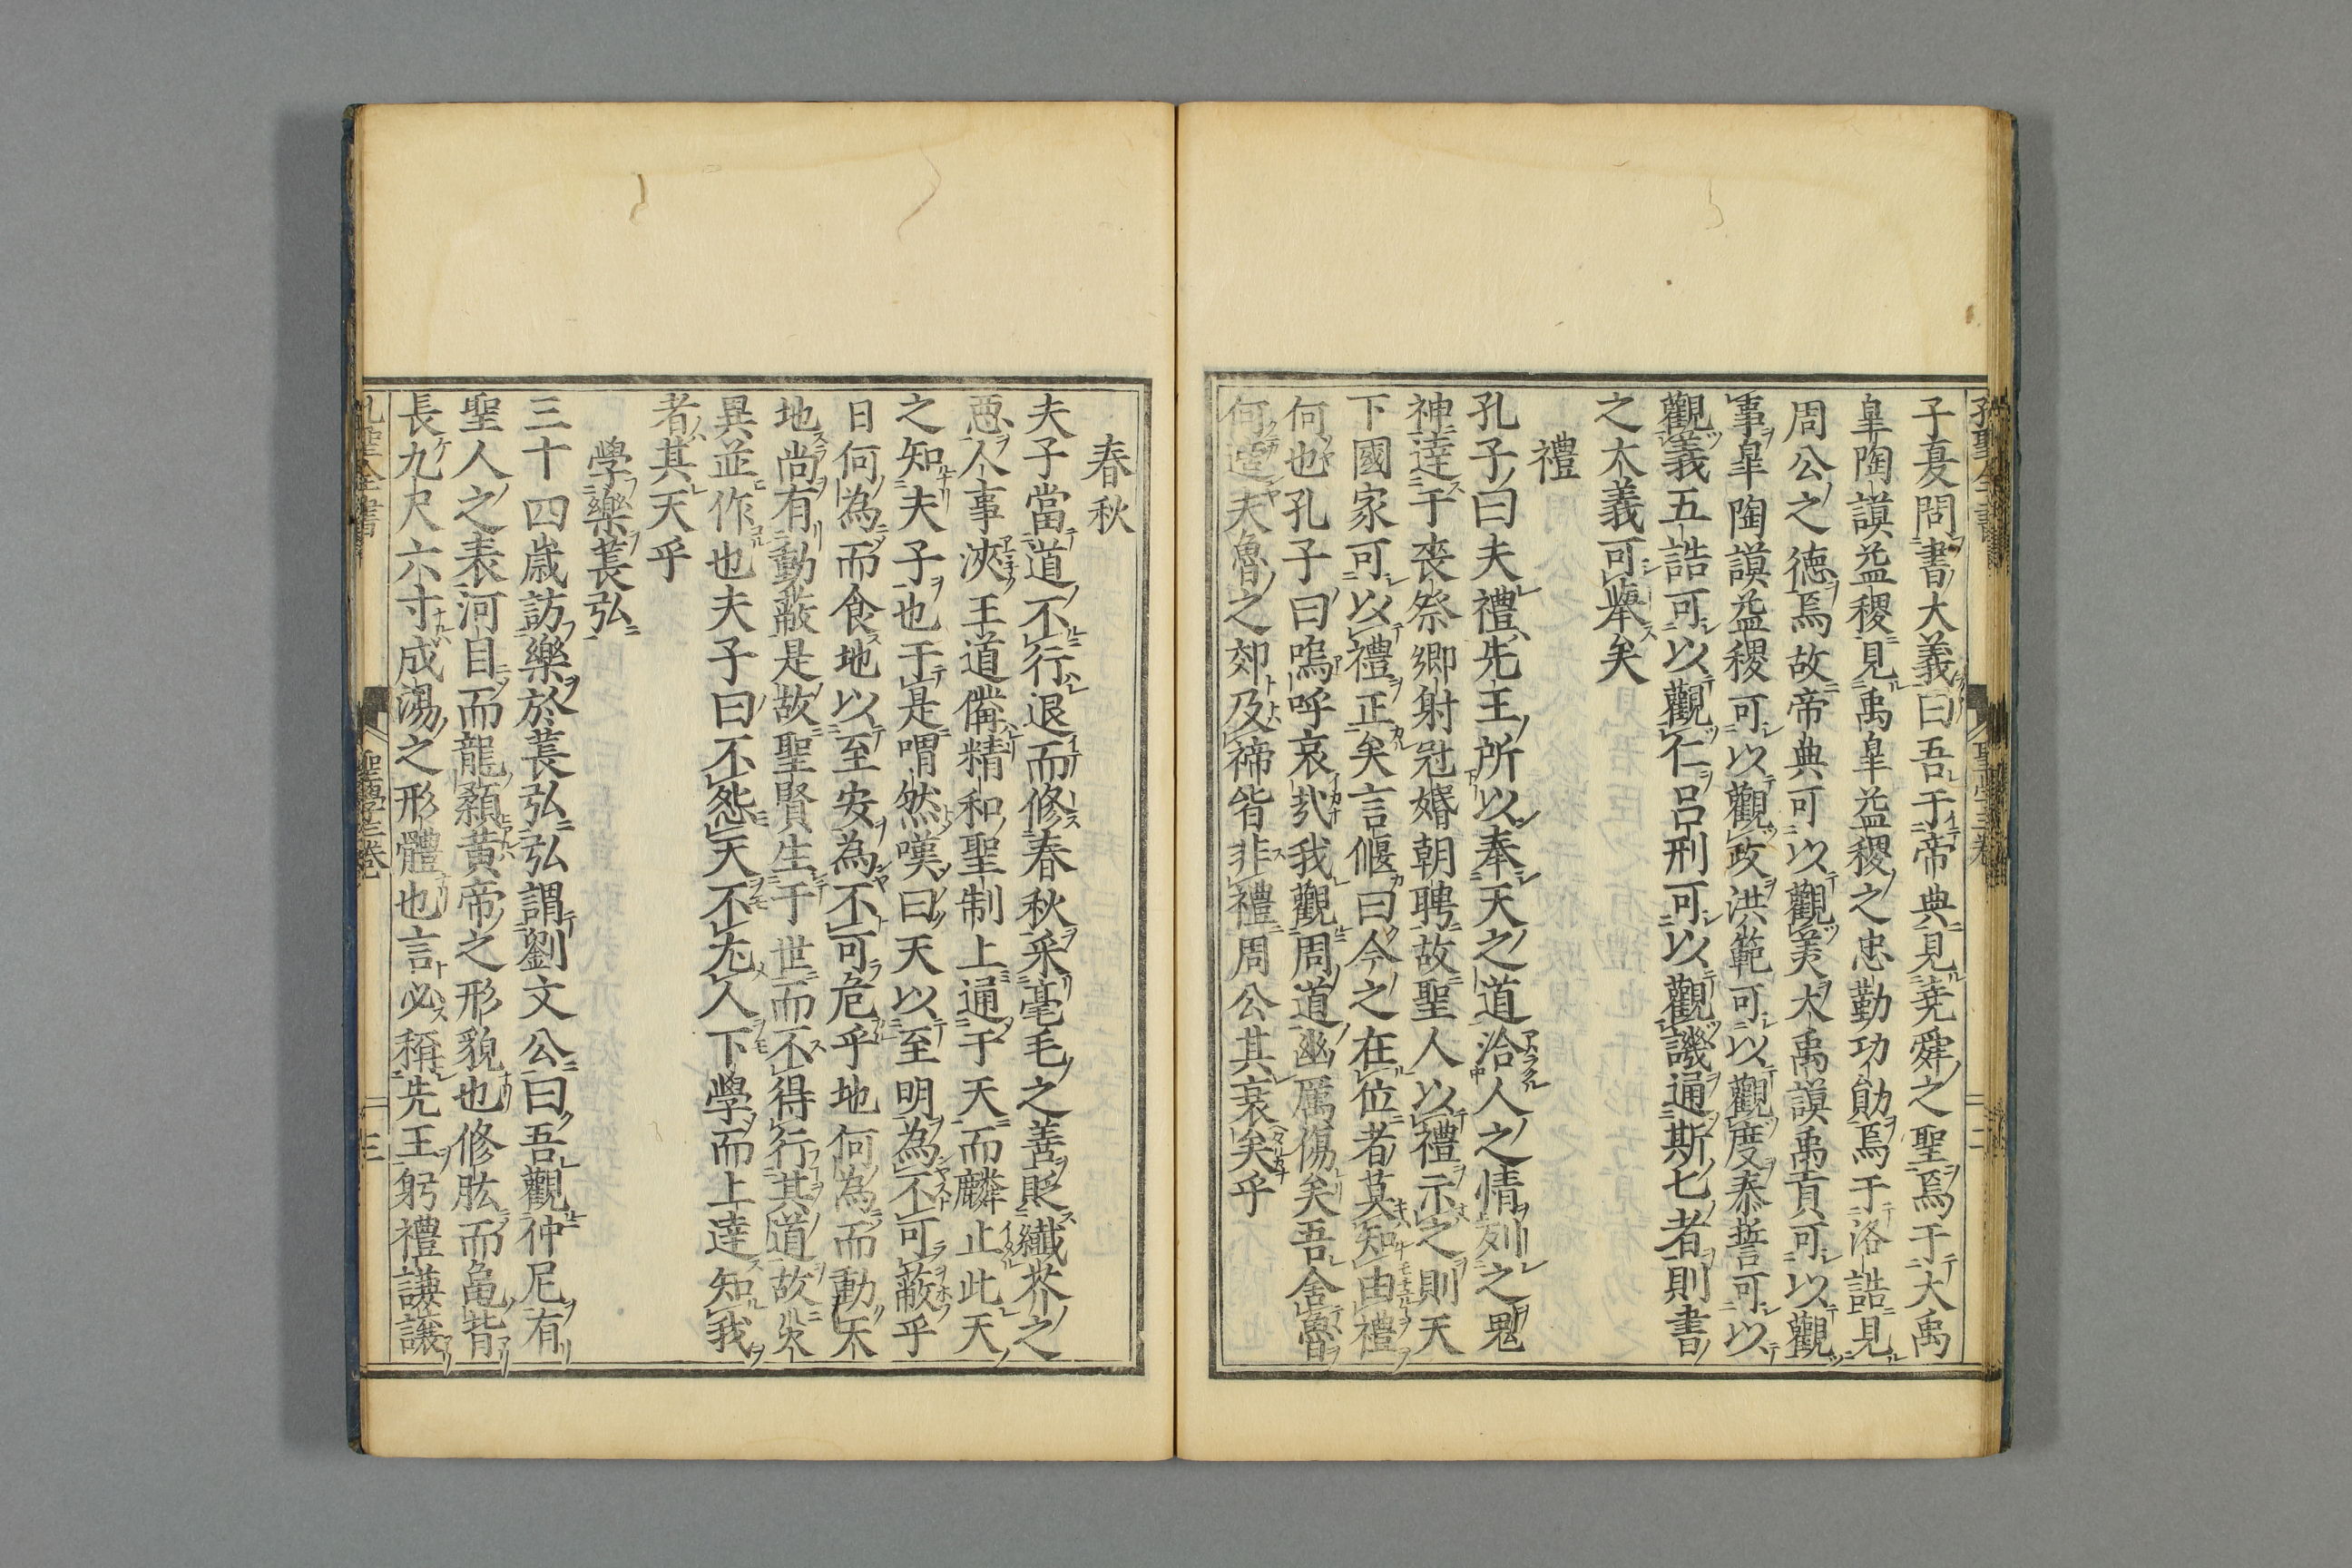 子夏問書大義曰吾于帝典見堯舜之聖焉于大禹
皐陶謨益稷見禹皐益稷之忠勤功勛焉于洛誥見
周公之德焉故帝典可以觀美大禹謨禹貢可以觀
事皐陶謨益稷可以觀政洪範可以觀度泰誓可以
觀義五誥可以觀仁呂刑可以觀譏通斯七者則書
之大義可舉矣
禮
孔子曰夫禮先王所以奉天之道洽人之情列之鬼
神達于喪祭鄉射冠婚朝聘故聖人以禮示之則天
下國家可以禮正矣言偃曰今之在位者莫知由禮
何也孔子曰嗚呼哀哉我觀周道幽厲傷矣吾舍魯
何適夫魯之郊及禘皆非禮周公其衰矣乎
春秋
夫子當道不行退而修春秋采毫毛之善貶纖芥之
惡人事浹王道備精和聖制上通于天而麟止此天
之知夫子也于是喟然嘆曰天以至明為不可蔽乎
日何為而食地以至安為不可危乎地何為而動天
地尚有動蔽是故聖賢生于世而不得行其道故災
異並作也夫子曰不怨天不尤人下學而上達知我
者其天乎
學樂萇弘
三十四歲訪樂於萇弘弘謂劉文公曰吾觀仲尼有
聖人之表河目而龍顙黃帝之形貌也修肱而龜背
長九尺六寸成湯之形體也言必稱先王躬禮謙讓
孔聖全書
聖學三卷
三